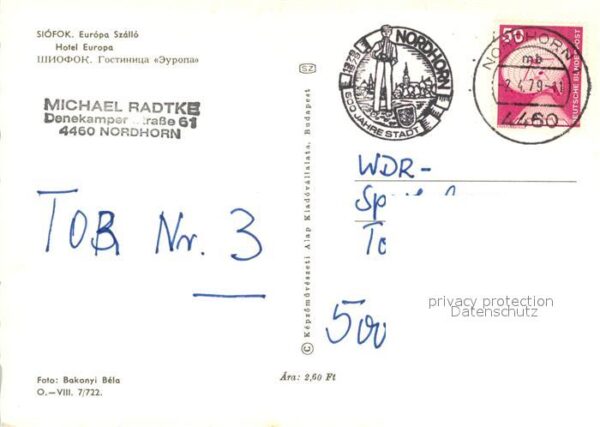 SIÓFOK. Európa Szálló
Hotel Europa
ШИОФОК. Гостиница «Эуропа»
MICHAEL RADTKE
Denekamper Straße 61
4460 NORDHORN
TOB Nr. 3
Foto: Bakonyi Béla
O.—VIII. 7/722.
SZ
© Képzőművészeti Alap Kiadóvállalata, Budapest
Ára: 2,60 Ft
1379 1979
NORDHORN
600 JAHRE STADT
NORDHORN
mb
2.4.79
4460
50
DEUTSCHE BUNDESPOST
WDR-
Sp
To
500
privacy protection
Datenschutz